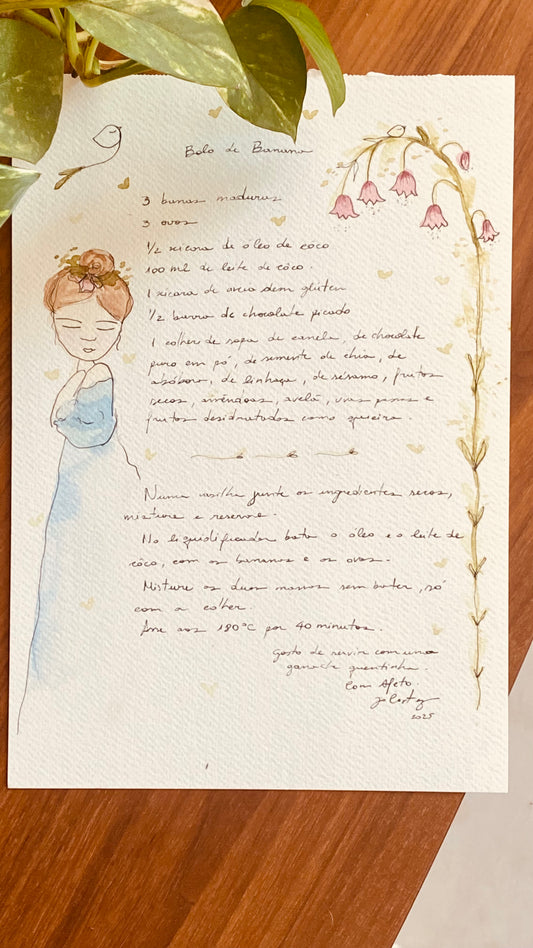 Bolo de Banana
3 bananas maduras
3 ovos
1/2 xícara de óleo de côco
100 ml de leite de côco.
1 xícara de aveia sem glúten
1/2 barra de chocolate picado
1 colher de sopa de canela, de chocolate
puro em pó, de semente de chia, de
abóbora, de linhaça, de sésamo, frutos
secos, amêndoas, avelã, uvas passas e
frutos desidratados como queira.
Numa vasilha junte os ingredientes secos,
misture e reserve.
No liquidificador bata o óleo e o leite de
côco, com as bananas e os ovos.
Misture as duas massas sem bater, só
com a colher.
Asse aos 180°C por 40 minutos.
Gosto de servir com uma
ganache quentinha.
Com Afeto.
2025